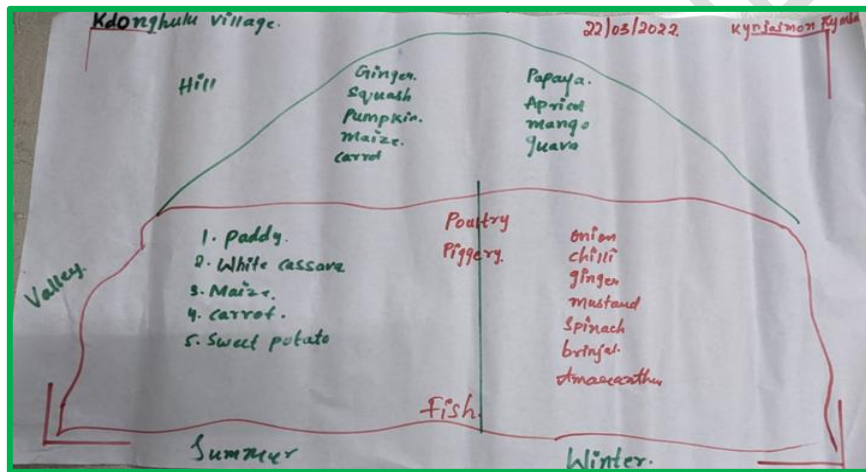 Kdonghulu village.
22/03/2022.
Hill
Ginger.
Squash
Pumpkin.
maize.
carrot
Papaya.
Apricot
mango
guava
Valley.
1. paddy.
2. White cassava
3. Maize.
4. carrot.
5. Sweet potato
Poultry
Piggery.
onion
chilli
ginger
mustaud
Spinach
brinjal.
Amaranthus
Fish.
Summer
Winter.